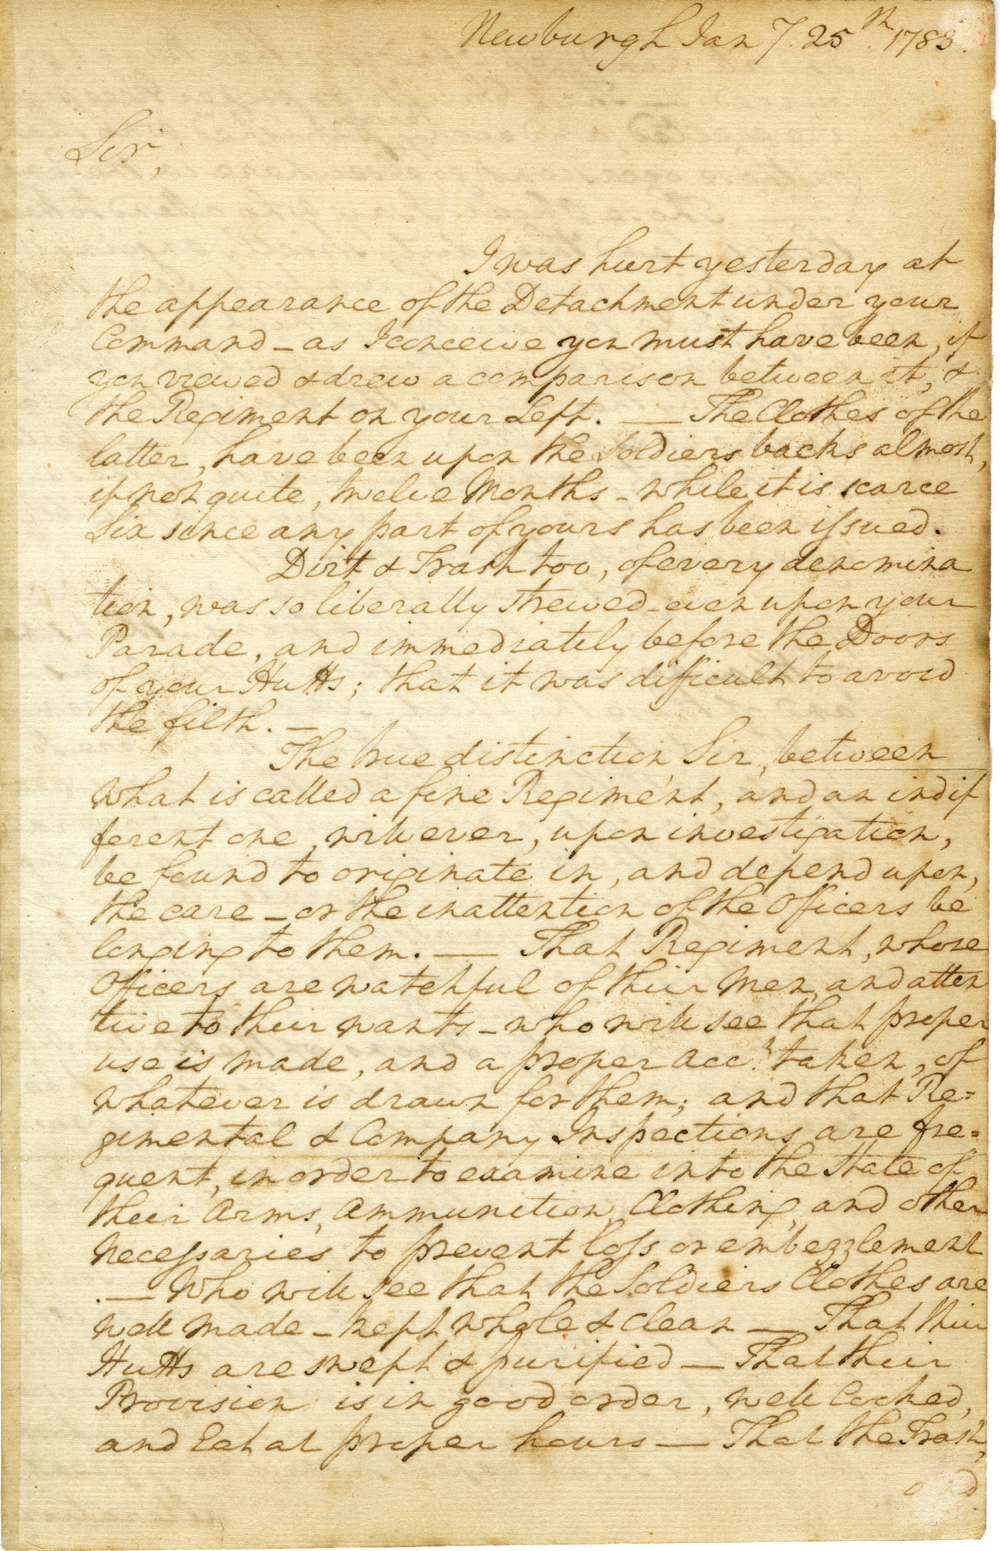 Newburgh Jany. 25th. 1783.
Sir,
I was hurt yesterday at
the appearance of the Detachment under your
Command – as I conceive you must have been, if
you viewed & drew a comparison between it, &
the Regiment on your Left. — The Clothes of the
latter, have been upon the Soldiers backs almost,
if not quite, twelve Months – while it is scarce
Six since any part of yours has been issued.
Dirt & Trash too, of every denomina
tion, was so liberally strewed – even upon your
Parade, and immediately before the Doors
of your Hutts; that it was difficult to avoid
the filth. —
The true distinction Sir, between
what is called a fine Regiment, and an indif
ferent one, will ever, upon investigation,
be found to originate in, and depend upon,
the care – or the inattention of the Officers be
longing to them. — That Regiment, whose
Officers are watchful of their Men, and atten
tive to their wants – who will see that proper
use is made, and a proper acct. taken, of
whatever is drawn for them; and that Re=
gimental & Company Inspections are fre=
quent, in order to examine into the State of
their Arms, Ammunition, Clothing, and other
necessaries to prevent loss or embezzlement
. — Who will see that the Soldiers Clothes are
well made – kept whole & clean — That their
Hutts are swept & purified — That their
Provision is in good order, well Cooked,
and Eat at proper hours — That the Trash,